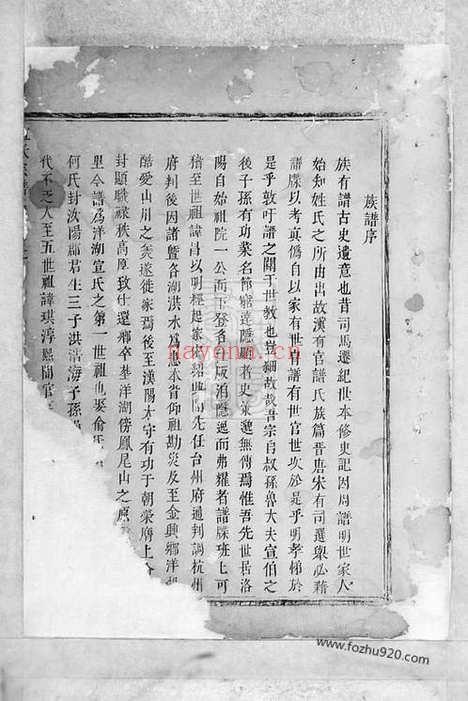 族譜序
族有譜古史遺意也昔司馬遷紀世本修史記因周譜明世家人
始知姓氏之所由出故漢有官譜氏族篇晉唐宋有司選舉必藉
譜牒以考真偽自以家有世自譜有世官世次於是乎明孝悌於
是乎敦吁譜之關于世教也豈細故哉吾宗自叔孫魯大夫宣伯之
後子孫有功業名節顯達隱顯者史策邈無傳焉惟吾先世居洛
陽自始祖院一公而下登名仕版泊隱遯而弗耀者譜牒班班可
稽至世祖諱昌以明經起家紹世間先任台州府通判調杭州
府判後因諸暨各湖洪水為患奉旨仰祖勘災及至金興鄉洋湖
酷愛山川之美遂徙家焉後至漢陽太守有功于朝榮府上
封顯職祿秩高厚致仕還鄉卒葬洋湖傍鳳尾山之原
里今譜為洋湖宣氏之第一世祖也娶俞氏
何氏封汝陽郡君生三子洪浩海子孫
代不乏人至五世祖諱琪淳熙間官
www.fozhu920.com
nayona.cn